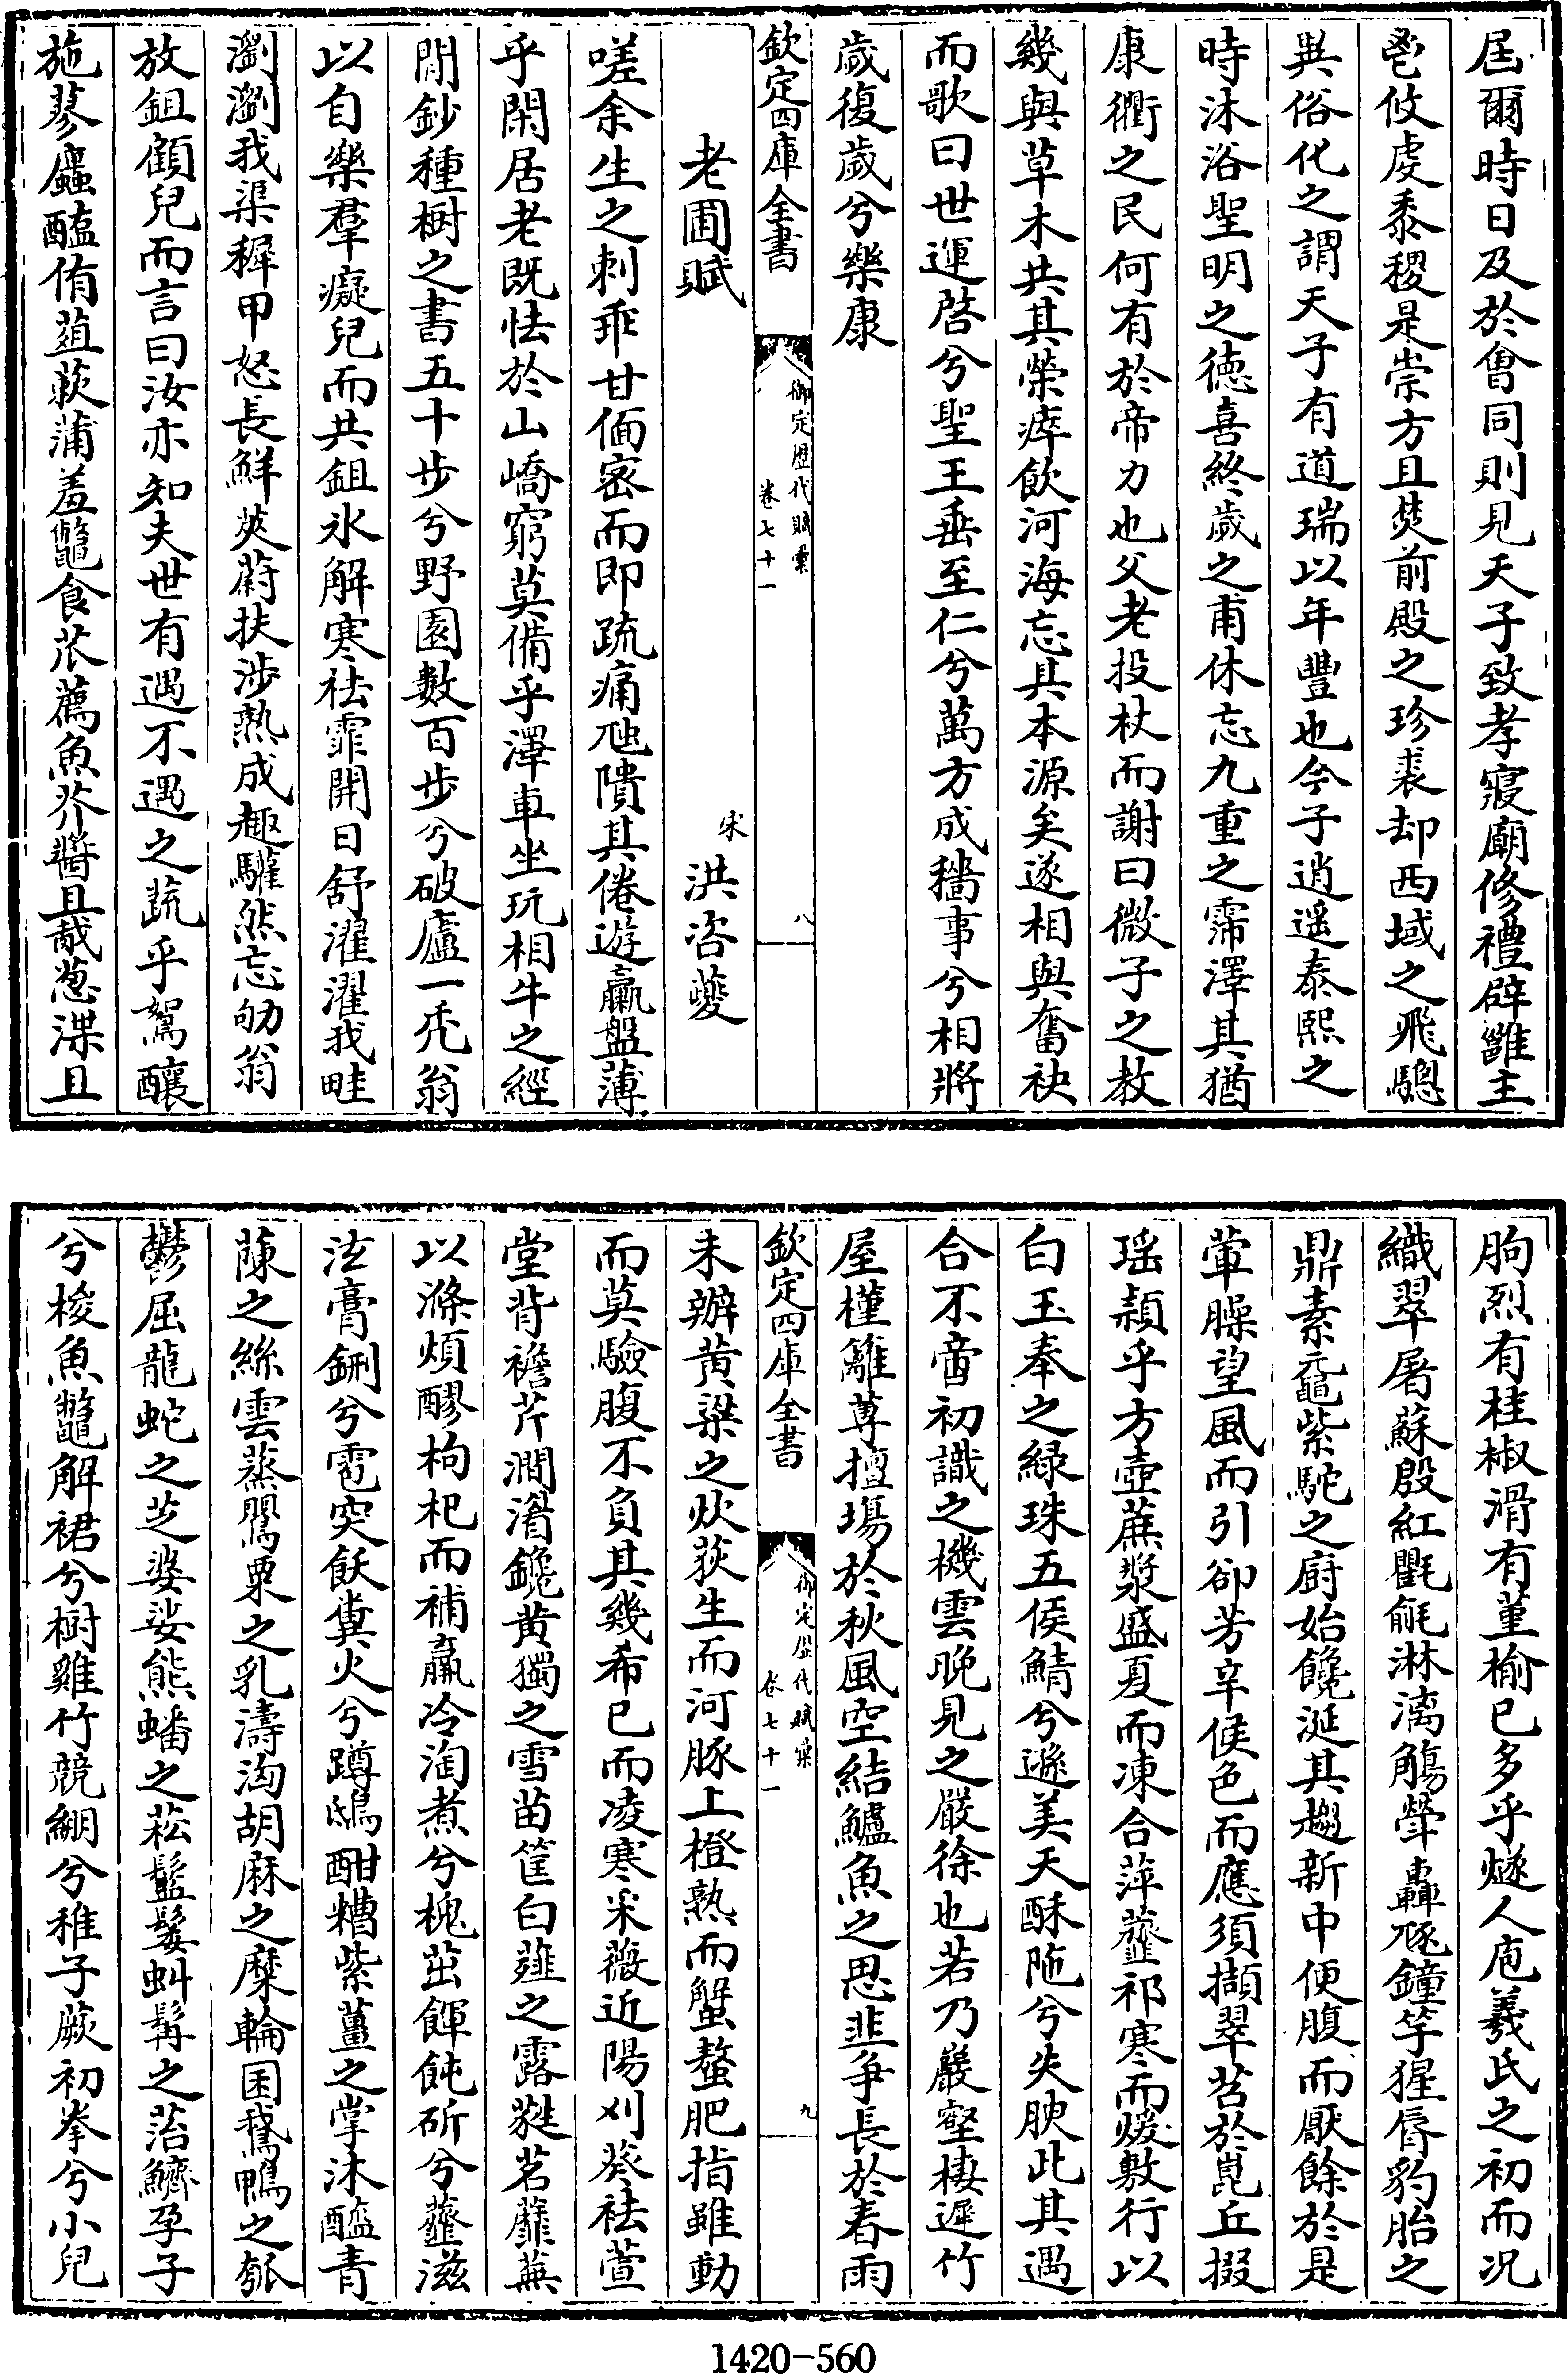 屆爾時日及於會同則見天子致孝寢廟修禮辟雝主
鬯攸虔黍稷是崇方且焚前殿之珍裘却西域之飛驄
異俗化之謂天子有道瑞以年豐也今子逍遥泰熙之
時沐浴聖明之德喜終歲之甫休忘九重之霈澤其猶
康衢之民何有於帝力也父老投杖而謝曰微子之教
幾與草木共其榮瘁飲河海忘其本源矣遂相與奮袂
而歌曰世運啓兮聖王垂至仁兮萬方成穡事兮相將
歲復歲兮樂康
欽定四庫全書
御定歴代賦彙
卷七十一
八
老圃賦
宋洪咨夔
嗟余生之刺乖甘偭宻而即疏痛虺隤其倦遊羸盤薄
乎閑居老既怯於山嶠窮莫備乎澤車坐玩相牛之經
閒鈔種樹之書五十步兮野園數百步兮破廬一禿翁
以自樂羣癡兒而共鉏氷解寒祛霏開日舒濯濯我畦
瀏瀏我渠穉甲怒長鮮荑蔚扶渉熟成趣驩然忘劬翁
放鉏顧兒而言曰汝亦知夫世有遇不遇之蔬乎駕釀
施蓼麤醢侑葅蒺蒲羞鼈食苽薦魚芥醬且胾葱渫且
朐烈有桂椒滑有堇榆已多乎燧人庖羲氏之初而况
織翠屠蘇殷紅氍毹淋漓觴犖轟豗鐘竽猩脣豹胎之
鼎素黿紫駝之廚始饞涎其趨新中便腹而厭餘於是
葷臊望風而引卻芳辛候色而應須擷翠苕於崑丘掇
瑶頴乎方壺蔗漿盛夏而凍合萍虀祁寒而煖敷行以
白玉奉之緑珠五侯鯖兮遜美天酥陁兮失腴此其遇
合不啻初識之機雲晚見之嚴徐也若乃巖壑棲遲竹
屋槿籬蓴擅場於秋風空結鱸魚之思韭爭長於春雨
欽定四庫全書
御定歴代賦彙
卷七十一
九
未辦黄粱之炊荻生而河豚上橙熟而蟹螯肥指雖動
而莫驗腹不負其幾希已而凌寒采薇近陽刈葵祛萱
堂背襜芹澗湑鑱黄獨之雪苗筐白薤之露蕤茗蘼蕪
以滌煩醪枸杞而補羸冷淘煮兮槐茁餫飩斫兮虀滋
泫膏鉶兮雹突飫糞火兮蹲鴟酣糟紫薑之掌沐醯青
蔯之絲雲蒸罌粟之乳濤泃胡麻之糜輪囷鵞鴨之瓠
鬱屈龍蛇之芝婆娑熊蟠之菘鬅鬘虯髯之菭鱭孕子
兮椶魚鼈解裙兮樹雞竹競綳兮稚子蕨初拳兮小兒
1420-560